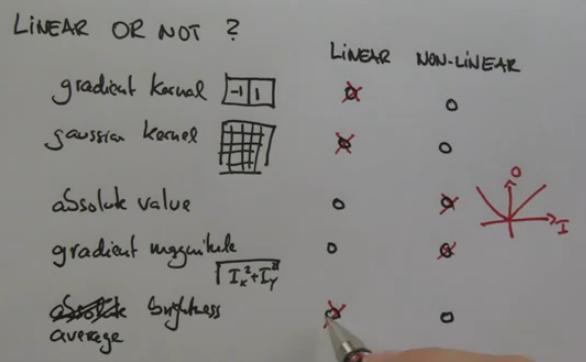 LINEAR OR NOT ?
LINEAR NON-LINEAR
gradient kernal -1 1
gaussian kernel
absolute value
O
I
gradient magnitude
√Ix²+Iy²
absolute brightness
average